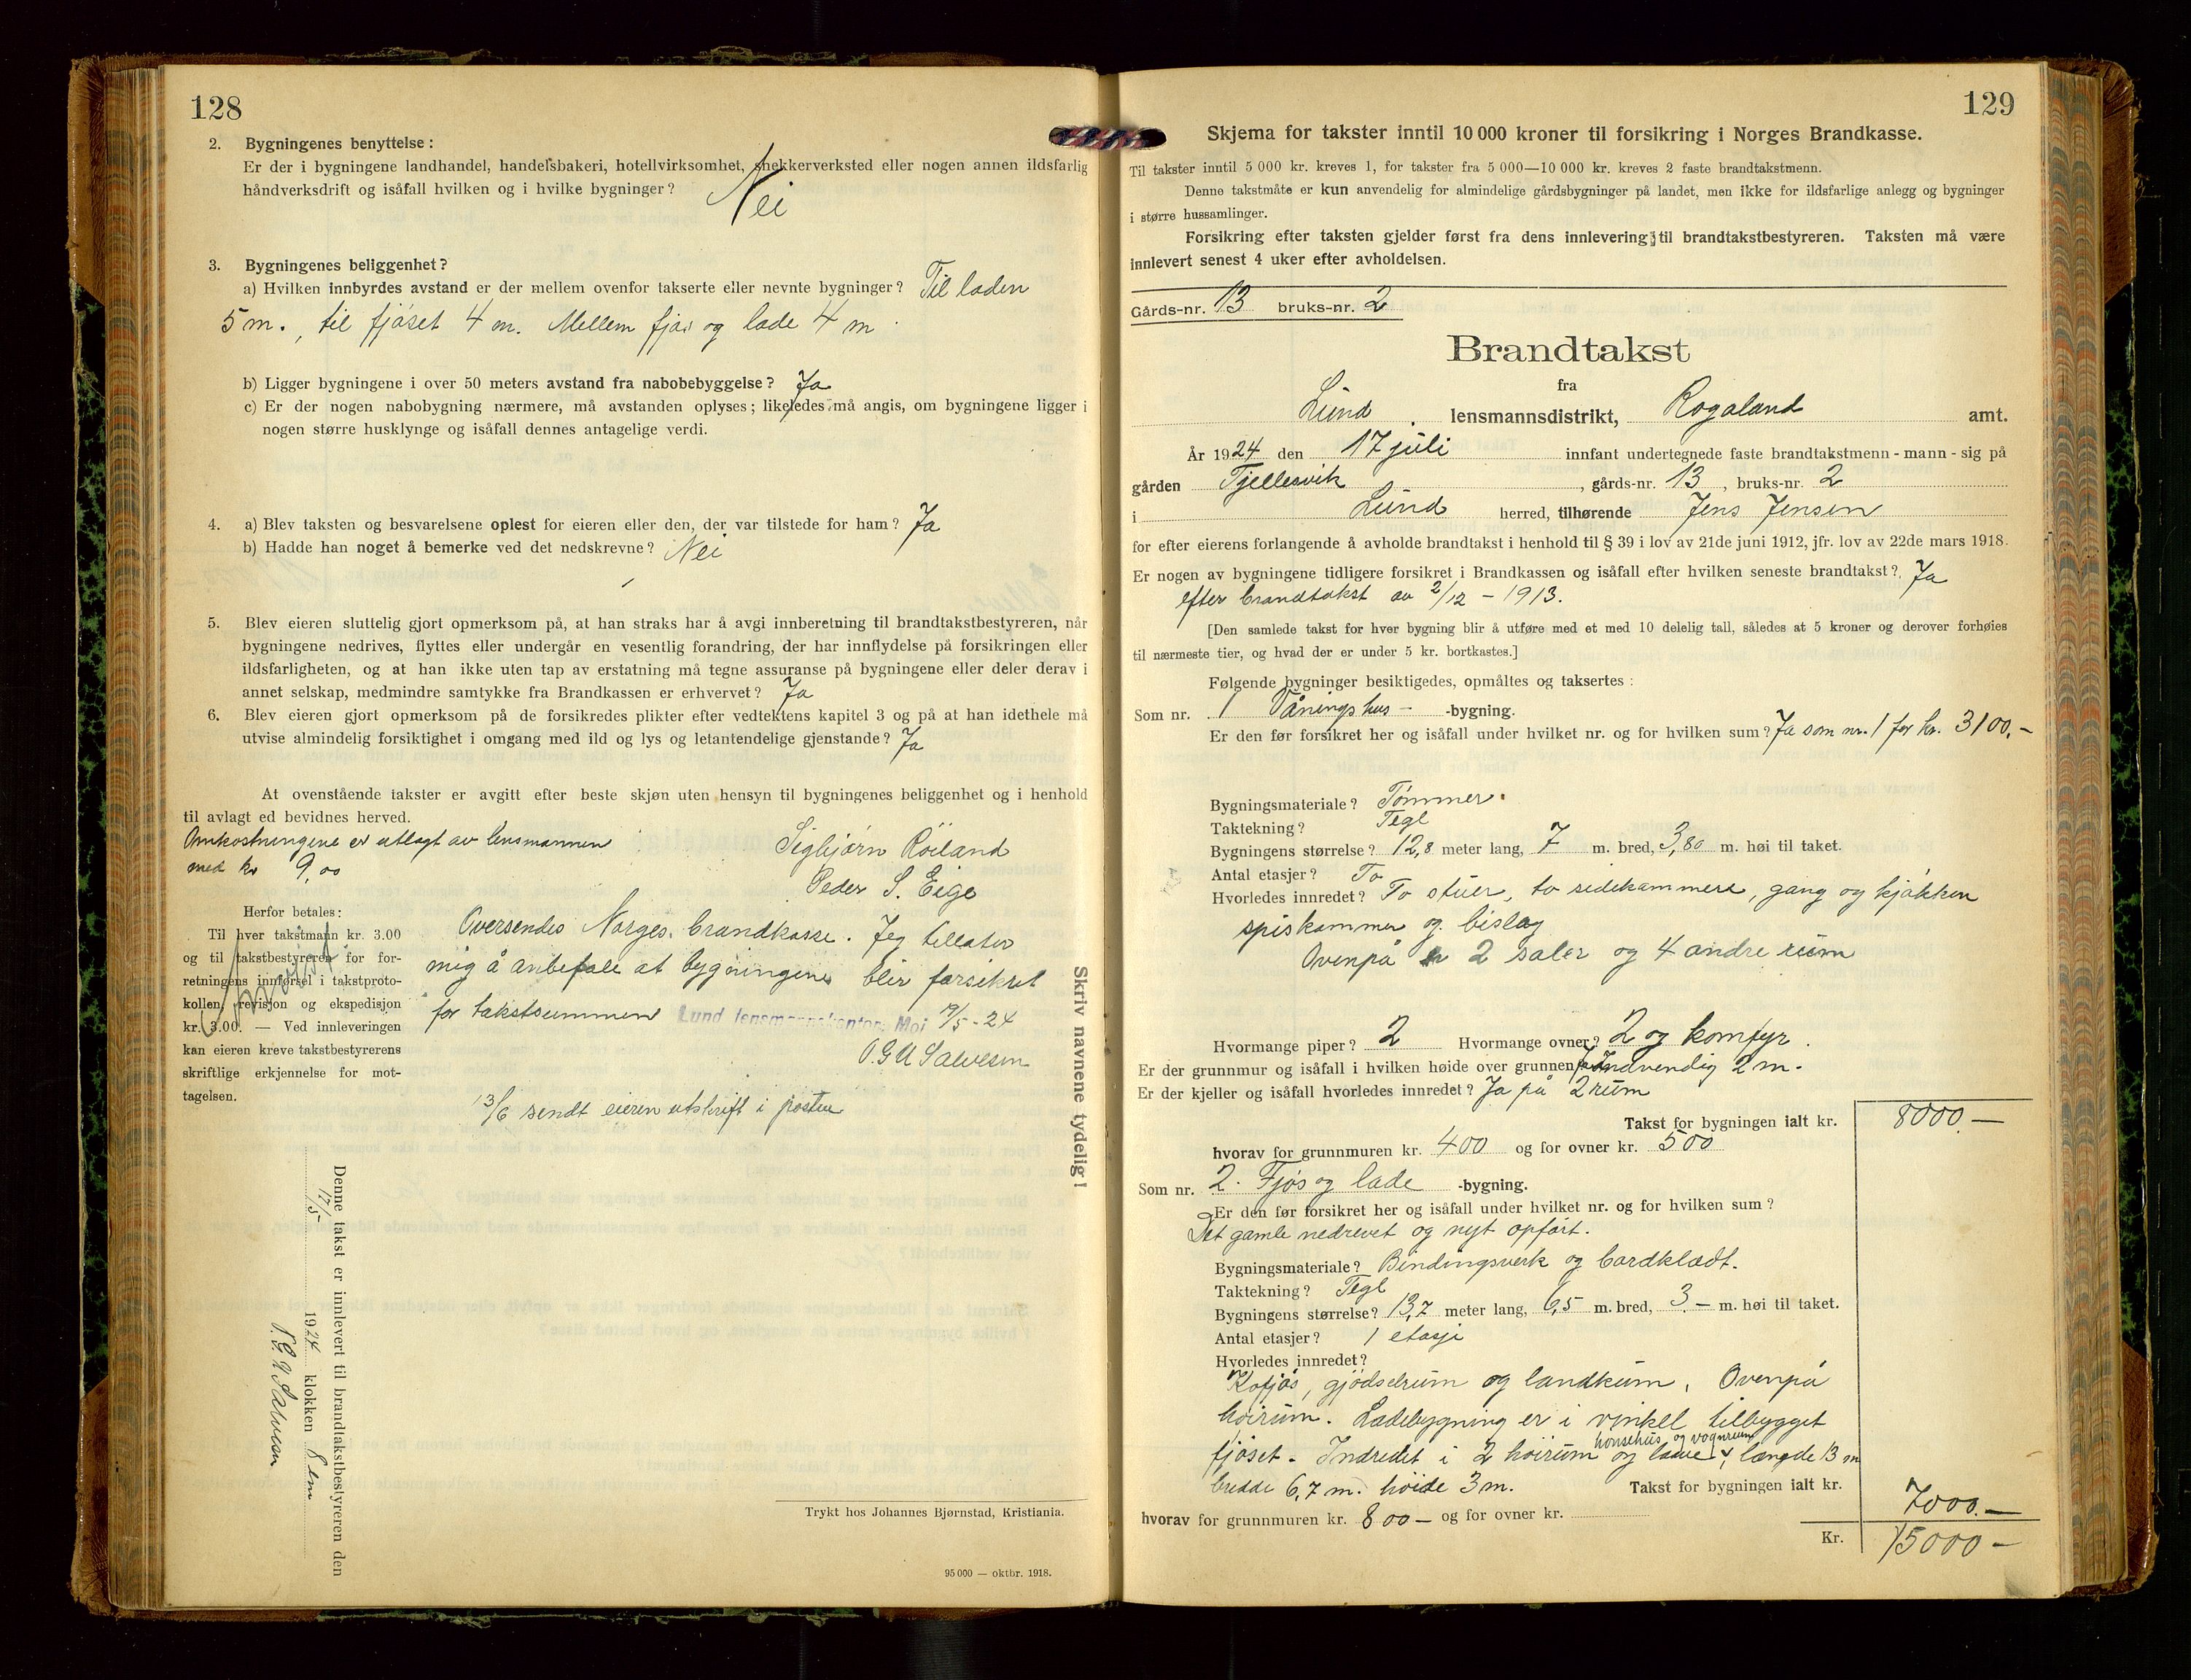 128
2. Bygningenes benyttelse:
Er der i bygningene landhandel, handelsbakeri, hotellvirksomhet, snekkerverksted eller nogen annen ildsfarlig
håndverksdrift og isåfall hvilken og i hvilke bygninger? Nei
3. Bygningenes beliggenhet?
a) Hvilken innbyrdes avstand er der mellem ovenfor takserte eller nevnte bygninger? Til laden
5 m., til fjøset 4 m. Mellem fjøs og lade 4 m.
b) Ligger bygningene i over 50 meters avstand fra nabobebyggelse? Ja
c) Er der nogen nabobygning nærmere, må avstanden oplyses; likeledes må angis, om bygningene ligger i
nogen større husklynge og isåfall dennes antagelige verdi.
4. a) Blev taksten og besvarelsene oplest for eieren eller den, der var tilstede for ham? Ja
b) Hadde han noget å bemerke ved det nedskrevne? Nei
5. Blev eieren sluttelig gjort opmerksom på, at han straks har å avgi innberetning til brandtakstbestyreren, når
bygningene nedrives, flyttes eller undergår en vesentlig forandring, der har innflydelse på forsikringen eller
ildsfarligheten, og at han ikke uten tap av erstatning må tegne assuranse på bygningene eller deler derav i
annet selskap, medmindre samtykke fra Brandkassen er erhvervet? Ja
6. Blev eieren gjort opmerksom på de forsikredes plikter efter vedtektens kapitel 3 og på at han idethele må
utvise almindelig forsiktighet i omgang med ild og lys og letantendelige gjenstande? Ja
At ovenstående takster er avgitt efter beste skjøn uten hensyn til bygningenes beliggenhet og i henhold
til avlagt ed bevidnes herved.
Omkostningene er utlagt av lensmannen
med kr 9,00
Sigbjørn Röiland
Peder S. Eige
Herfor betales:
Til hver takstmann kr. 3.00
og til takstbestyreren for for-
retningens innførsel i takstproto-
kollen, revisjon og ekspedisjon
kr. 3.00. — Ved innleveringen
kan eieren kreve takstbestyrerens
skriftlige erkjennelse for mot-
tagelsen.
Oversendes Norges brandkasse. Jeg tillater
mig å anbefale at bygningene blir forsikret
for takstsummen Lund lensmannskontor, Moi 19/5-24
P.G.U Salvesen
13/6 sendt eieren utskrift i posten
Skriv navnene tydelig!
Denne takst er innlevert til brandtakstbestyreren den
17/5 1924 klokken 8 em
P.G.U Salvesen
Trykt hos Johannes Bjørnstad, Kristiania.
95 000 — oktbr. 1918.
129
Skjema for takster inntil 10 000 kroner til forsikring i Norges Brandkasse.
Til takster inntil 5 000 kr. kreves 1, for takster fra 5 000—10 000 kr. kreves 2 faste brandtakstmenn.
Denne takstmåte er kun anvendelig for almindelige gårdsbygninger på landet, men ikke for ildsfarlige anlegg og bygninger
i større hussamlinger.
Forsikring efter taksten gjelder først fra dens innlevering til brandtakstbestyreren. Taksten må være
innlevert senest 4 uker efter avholdelsen.
Gårds-nr. 13 bruks-nr. 2
Brandtakst
fra
Lund lensmannsdistrikt, Rogaland amt.
År 1924 den 17 juli innfant undertegnede faste brandtakstmenn - mann - sig på
gården Tjellesvik, gårds-nr. 13, bruks-nr. 2
i Lund herred, tilhørende Jens Jensen
for efter eierens forlangende å avholde brandtakst i henhold til § 39 i lov av 21de juni 1912, jfr. lov av 22de mars 1918.
Er nogen av bygningene tidligere forsikret i Brandkassen og isåfall efter hvilken seneste brandtakst? Ja
efter brandtakst av 2/12 - 1913.
[Den samlede takst for hver bygning blir å utføre med et med 10 delelig tall, således at 5 kroner og derover forhøies
til nærmeste tier, og hvad der er under 5 kr. bortkastes.]
Følgende bygninger besiktigedes, opmåltes og taksertes:
Som nr. 1 Våningshus- -bygning.
Er den før forsikret her og isåfall under hvilket nr. og for hvilken sum? Ja som nr. 1 for kr. 3100,-
Bygningsmateriale? Tømmer.
Taktekning? Tegl
Bygningens størrelse? 12,8 meter lang, 7 m. bred, 3,80 m. høi til taket.
Antal etasjer? To
Hvorledes innredet? To stuer, to sidekammere, gang og kjøkken
spiskammer og bislag
Ovenpå 2 saler og 4 andre rum
Hvormange piper? 2 Hvormange ovner? 2 og komfyr.
Er der grunnmur og isåfall i hvilken høide over grunnen? Indvendig 2 m.
Er der kjeller og isåfall hvorledes innredet? Ja på 2 rum
Takst for bygningen ialt kr. 8000.—
hvorav for grunnmuren kr. 400 og for ovner kr. 500
Som nr. 2. Fjøs og lade -bygning.
Er den før forsikret her og isåfall under hvilket nr. og for hvilken sum?
Det gamle nedrevet og nyt opført.
Bygningsmateriale? Bindingsverk og bordklædt.
Taktekning? Tegl
Bygningens størrelse? 13,7 meter lang, 6,5 m. bred, 3.— m. høi til taket.
Antal etasjer? 1 etasje
Hvorledes innredet?
Kofjøs, gjødselrum og landkum. Ovenpå
høirum. Ladebygning er i vinkel tilbygget
fjøset. Indredet i 2 høirum hønsehus og vognrum og laave længde 13 m
bredde 6,7 m. høide 3 m. Takst for bygningen ialt kr. 7000.—
hvorav for grunnmuren kr. 800— og for ovner kr.
Kr. 15000—